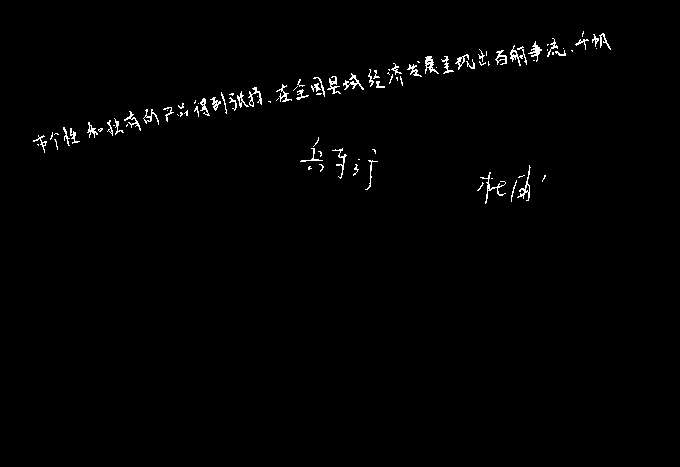 市个性和独有的产品得到张扬、在全国县域经济发展呈现出百舸争流、千帆
兵车行
杜甫